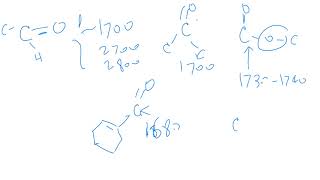 C C = O ~1700
H 2700
2800
O
C
C C
1700
O
C O C
1735-1740
O
C
168
C